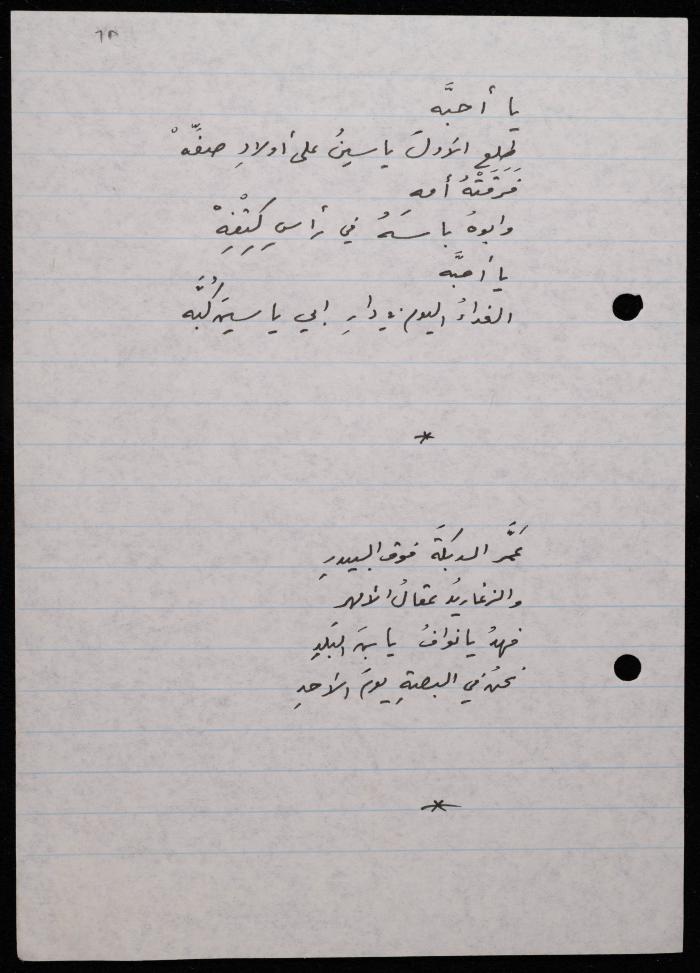 ٦٨
يا أحبَّه
طلع الأولَ ياسينُ على أولادِ صفِّهْ
فَرَقَتْهُ أمه
وابوهُ باسَهُ في رأسِ كِتْفِهْ
يا أحبَّه
الغداءُ اليوم في دارِ ابي ياسينَ كُبَّه
*
عَمَّر الدبكةَ فوق البيدرِ
والزغاريدُ عقالُ الأسمر
فهدُ يا نوافُ يا بنَ البَلَدِ
نحنُ في البصةِ يومَ الأحدِ
*